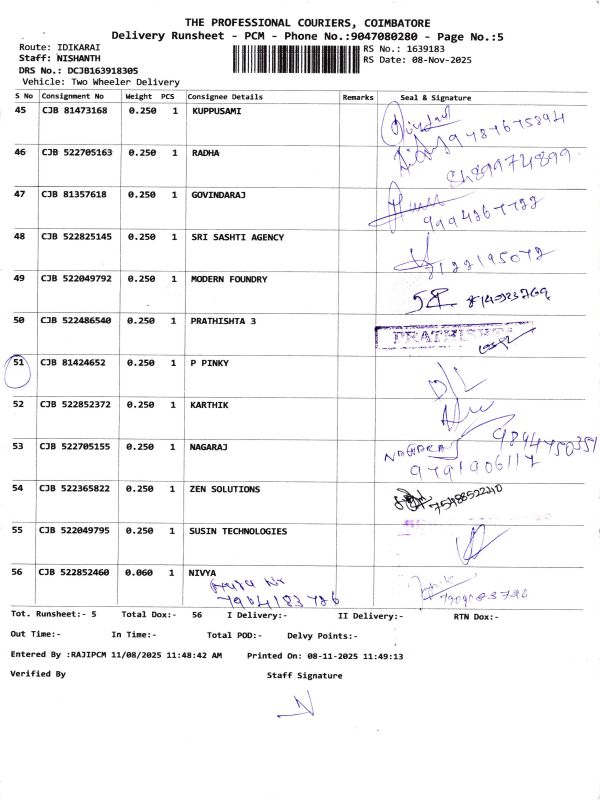 THE PROFESSIONAL COURIERS, COIMBATORE
Delivery Runsheet - PCM - Phone No.:9047080280 - Page No.:5
Route: IDIKARAI
RS No.: 1639183
Staff: NISHANTH
RS Date: 08-Nov-2025
DRS No.: DCJB163918305
Vehicle: Two Wheeler Delivery
S No Consignment No Weight PCS Consignee Details Remarks Seal & Signature
45 CJB 81473168 0.250 1 KUPPUSAMI
46 CJB 522705163 0.250 1 RADHA
47 CJB 81357618 0.250 1 GOVINDARAJ
48 CJB 522825145 0.250 1 SRI SASHTI AGENCY
49 CJB 522049792 0.250 1 MODERN FOUNDRY
50 CJB 522486540 0.250 1 PRATHISHTA 3
51 CJB 81424652 0.250 1 P PINKY
D/L
52 CJB 522852372 0.250 1 KARTHIK
53 CJB 522705155 0.250 1 NAGARAJ
NAGARAJ
9791006117
54 CJB 522365822 0.250 1 ZEN SOLUTIONS
7548852240
55 CJB 522049795 0.250 1 SUSIN TECHNOLOGIES
56 CJB 522852460 0.060 1 NIVYA
Tot. Runsheet:- 5 Total Dox:- 56 I Delivery:- II Delivery:- RTN Dox:-
Out Time:- In Time:- Total POD:- Delvy Points:-
Entered By :RAJIPCM 11/08/2025 11:48:42 AM Printed On: 08-11-2025 11:49:13
Verified By Staff Signature